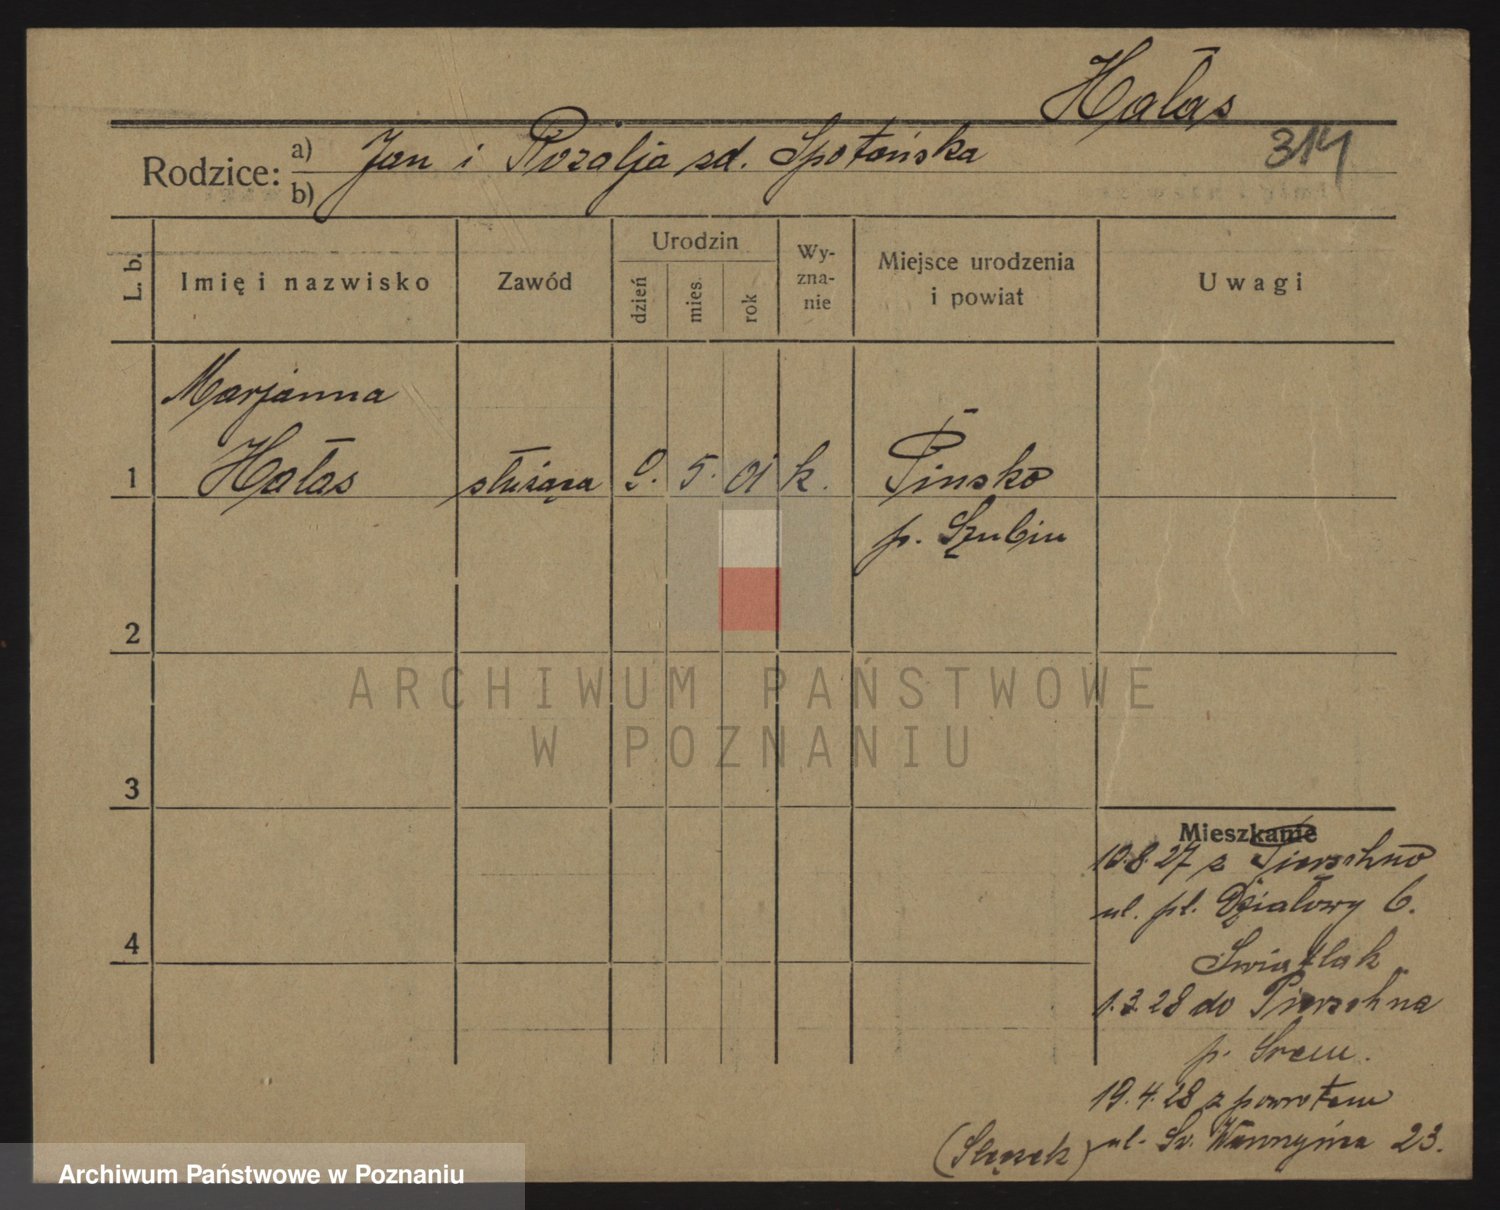 Hałas
314
Rodzice: a) Jan i Rozalja zd. Spotańska
b)
L. b. Imię i nazwisko Zawód Urodzin dzień mies. rok Wy-zna-nie Miejsce urodzenia i powiat Uwagi
Marjanna
1 Hałas służąca 9. 5. 01 k. Pińsko
p. Szubin
2
ARCHIWUM PAŃSTWOWE
W POZNANIU
3
Mieszkanie
10.8.27 z Pierzchno
ul. pl. Działowy 6.
4
Świątlak
1.3.28 do Pierzchna
p. Srem.
19.4.28 z powrotem
ul. Św. Wawrzyńca 23.
Archiwum Państwowe w Poznaniu